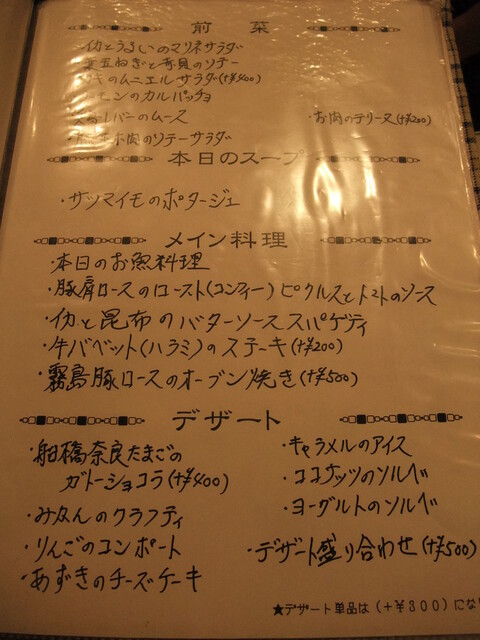 前菜
・イカとうるいのマリネサラダ
ねぎと青貝のソテー
キのムニエルサラダ(+¥400)
モンのカルパッチョ
レバーのムース
・お肉のテリーヌ(+¥200)
ホホ肉のソテーサラダ
本日のスープ
・サツマイモのポタージュ
メイン料理
・本日のお魚料理
・豚肩ロースのロースト(コンフィー)ピクルスとトマトのソース
・イカと昆布のバターソーススパゲティ
・牛バベット(ハラミ)のステーキ(+¥200)
・霧島豚ロースのオーブン焼き(+¥500)
デザート
・船橋奈良たまごの
ガトーショコラ(+¥400)
・みかんのクラフティ
・りんごのコンポート
・あずきのチーズケーキ
・キャラメルのアイス
・ココナッツのソルベ
・ヨーグルトのソルベ
・デザート盛り合わせ(+¥500)
★デザート単品は(+¥300)にな